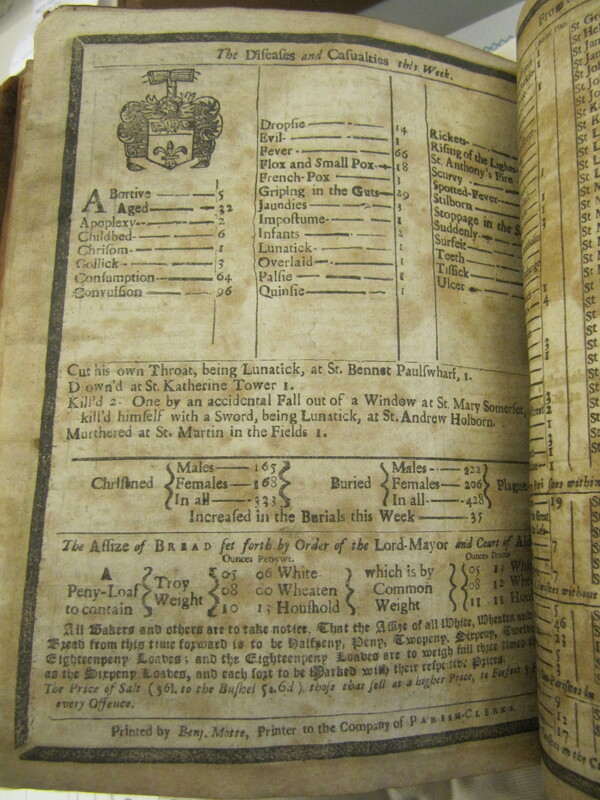 The Diseases and Casualties this Week.
ABortive — 5
Aged — 32
Apoplexy — 2
Childbed — 6
Chrisom — 1
Collick — 3
Consumption — 64
Convulsion — 96
Dropsie — 14
Evil — 1
Fever — 66
Flox and Small Pox — 18
French-Pox — 3
Griping in the Guts — 29
Jaundies — 3
Impostume — 1
Infants — 2
Lunatick — 1
Overlaid — 1
Palsie — 1
Quinsie — 1
Rickets
Rising of the Lights
St. Anthony's Fire
Scurvy
Spotted-Fever
Stilborn
Stoppage in the S
Suddenly
Surfeit
Teeth
Tissick
Ulcer
Cut his own Throat, being Lunatick, at St. Bennet Paulswharf, 1.
D own'd at St. Katherine Tower 1.
Kill'd 2. One by an accidental Fall out of a Window at St. Mary Somerset,
kill'd himself with a Sword, being Lunatick, at St. Andrew Holborn.
Murthered at St. Martin in the Fields 1.
Christned Males — 165 Females — 168 In all — 333
Buried Males — 222 Females — 206 In all — 428
Plague
Increased in the Burials this Week — 35
The Assize of BREAD set forth by Order of the Lord-Mayor and Court of Al
A Peny-Loaf to contain
Troy Weight
Ounces Penywt.
05 06 White
08 00 Wheaten
10 13 Houshold
which is by Common Weight
Ounces Drams
05 13 Whi
08 12 Whea
11 11 Hous
All Bakers and others are to take notice, That the Assize of all White, Wheaten and
Bread from this time forward is to be Halfpeny, Peny, Twopeny, Sixpeny, Twelve
Eighteenpeny Loaves; and the Eighteenpeny Loaves are to weigh full three times
as the Sixpeny Loaves, and each sort to be Marked with their respective Prices.
The Price of Salt (56l. to the Bushel 5s. 6d) those that sell at a higher Price, to Forfeit
every Offence.
Printed by Benj. Motte, Printer to the Company of PARISH-CLERKS.